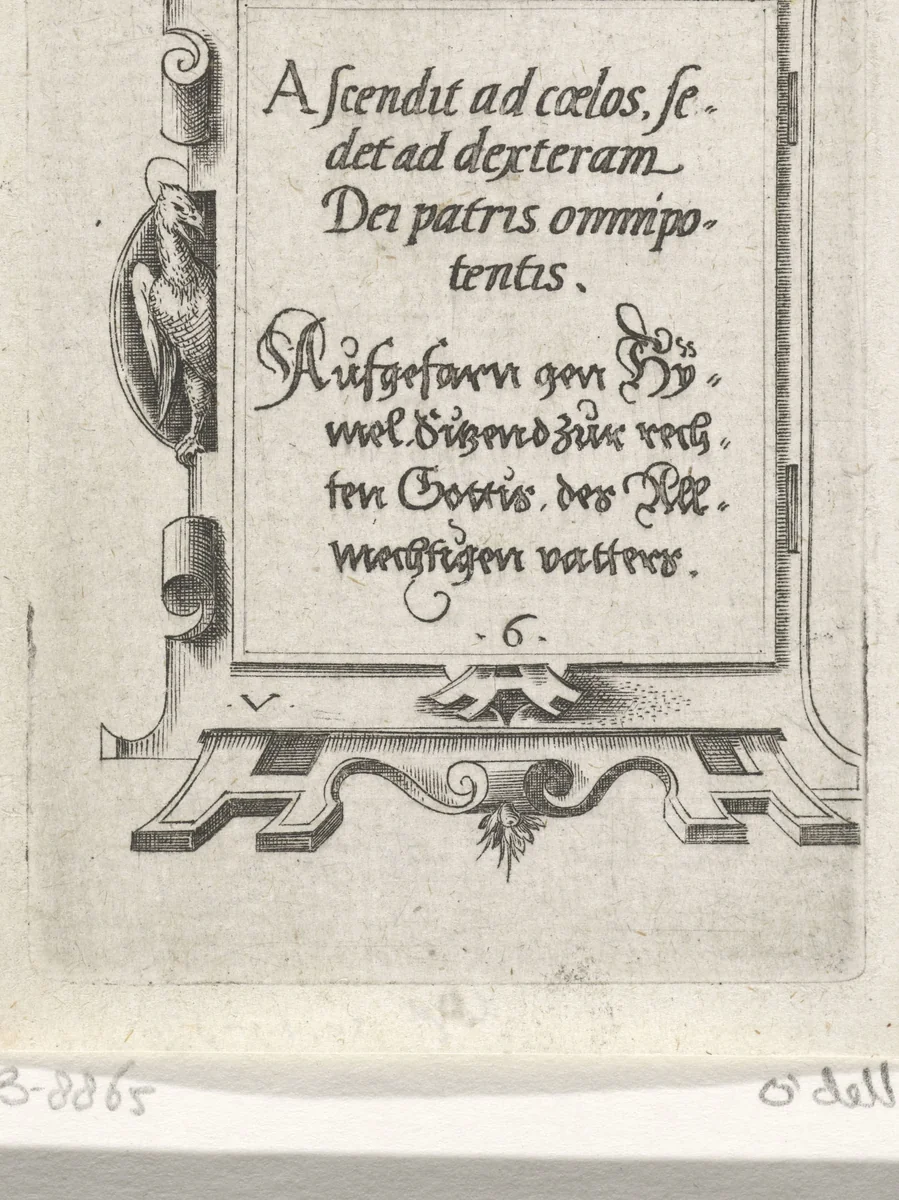 Ascendit ad cœlos, se-
det ad dexteram
Dei patris omnipo-
tentis.
Aufgefarn gen Hÿ-
mel. Sitzend zur rech-
ten Gottis, des All-
mechtigen vatters.
.6.
V
B-8865
o'dell